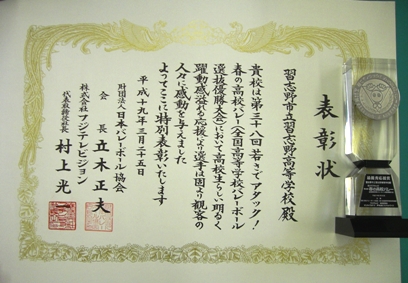 表彰状
習志野市立習志野高等学校殿
貴校は第三十八回若さでアタック!
春の高校バレー(全国高等学校バレーボール
選抜優勝大会)において高校生らしい明るく
躍動感溢れる応援により選手は固より観客の
人々に感動を与えました
よってここに特別表彰いたします
平成十九年三月二十五日
財団法人日本バレーボール協会
会長 立木正夫
株式会社フジテレビジョン
代表取締役社長 村上光一